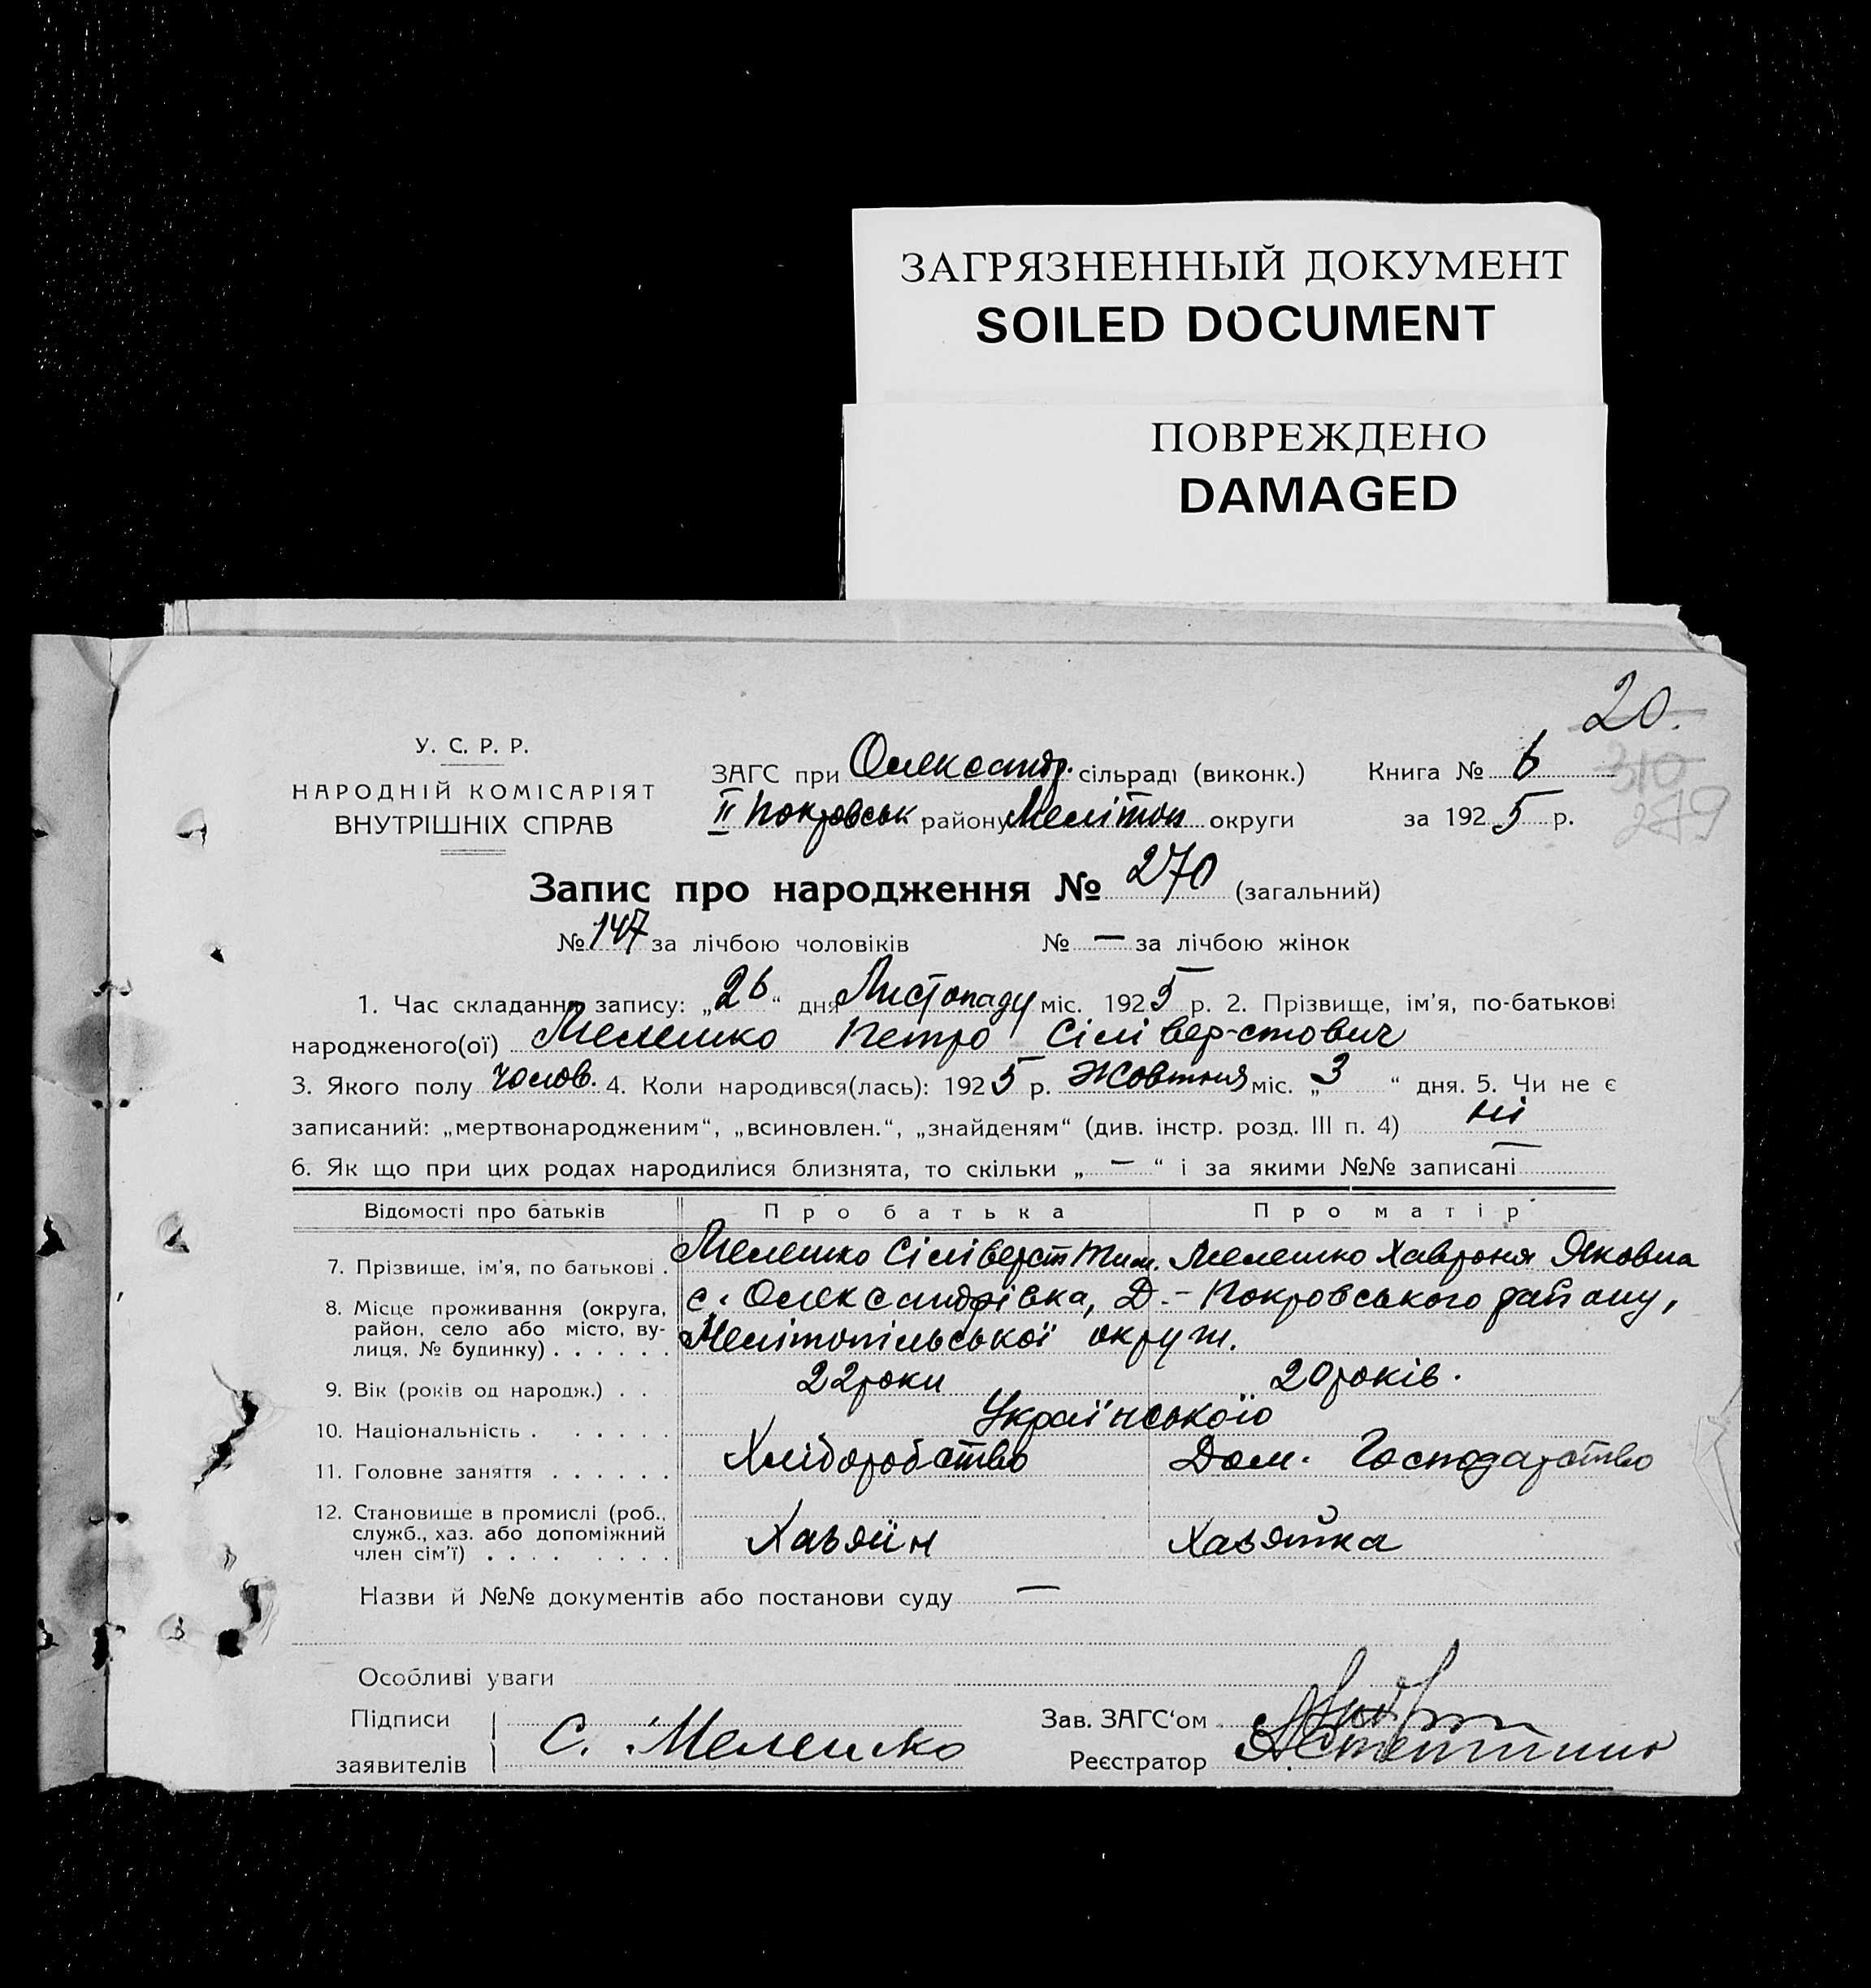 ЗАГРЯЗНЕННЫЙ ДОКУМЕНТ
SOILED DOCUMENT
ПОВРЕЖДЕНО
DAMAGED
20.
310
279
У. С. Р. Р.
НАРОДНІЙ КОМІСАРІЯТ
ВНУТРІШНІХ СПРАВ
ЗАГС при Олександр. сільраді (виконк.) Книга № 6
ІІ Покровськ району Мелітоп округи за 1925 р.
Запис про народження № 270 (загальний)
№ 147 за лічбою чоловіків № — за лічбою жінок
1. Час складання запису: „26“ дня Листопаду міс. 1925 р. 2. Прізвище, ім'я, по-батькові
народженого(ої) Мелешко Петро Сілівер-стович
3. Якого полу Чолов. 4. Коли народився(лась): 1925 р. Жовтня міс. „3“ дня. 5. Чи не є
записаний: „мертвонародженим“, „всиновлен.“, „знайденям“ (див. інстр. розд. III п. 4) ні
6. Як що при цих родах народилися близнята, то скільки „—“ і за якими №№ записані —
Відомості про батьків Про батька Про матір
7. Прізвище, ім'я, по батькові . Мелешко Сіліверст Тим. Мелешко Хавроня Яковна
8. Місце проживання (округа, с. Олександрівка, Д.-Покровського району,
район, село або місто, ву-
лиця, № будинку) . . . . . . Мелітопільської округи.
9. Вік (років од народж.) . . 22 роки 20 років.
10. Національність . . . . . . Українського
11. Головне заняття . . . . . . Хліборобство Дом. Господарство
12. Становище в промислі (роб.,
служб., хаз. або допоміжний Хазяїн Хазяйка
член сім'ї) . . . . . . . .
Назви й №№ документів або постанови суду —
Особливі уваги
Підписи Зав. ЗАГС'ом
С. Мелешко
заявителів Реєстратор